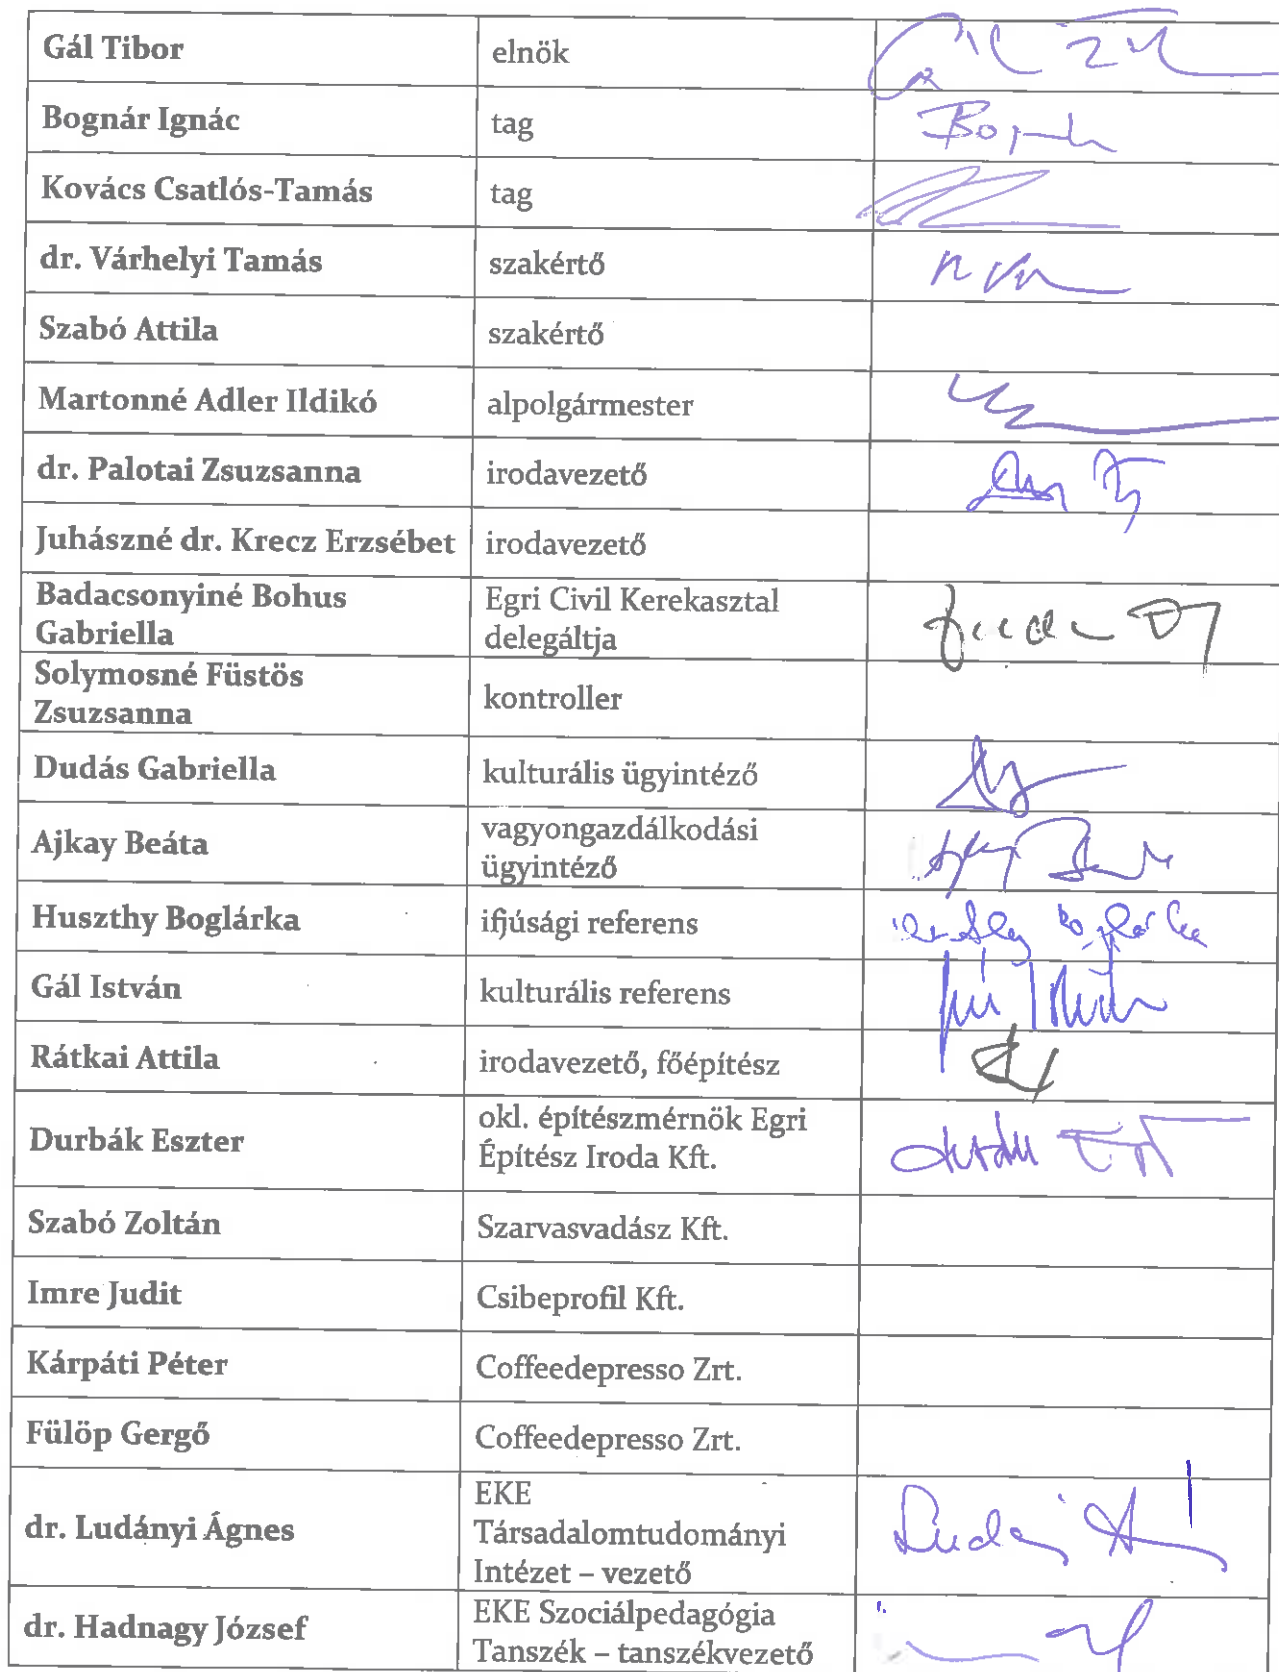 Gál Tibor elnök
Bognár Ignác tag
Kovács Csatlós-Tamás tag
dr. Várhelyi Tamás szakértő
Szabó Attila szakértő
Martonné Adler Ildikó alpolgármester
dr. Palotai Zsuzsanna irodavezető
Juhászné dr. Krecz Erzsébet irodavezető
Badacsonyiné Bohus
Gabriella
Egri Civil Kerekasztal
delegáltja
Solymosné Füstös
Zsuzsanna
kontroller
Dudás Gabriella kulturális ügyintéző
Ajkay Beáta
vagyongazdálkodási
ügyintéző
Huszthy Boglárka ifjúsági referens
Gál István kulturális referens
Rátkai Attila irodavezető, főépítész
Durbák Eszter
okl. építészmérnök Egri
Építész Iroda Kft.
Szabó Zoltán Szarvasvadász Kft.
Imre Judit Csibeprofil Kft.
Kárpáti Péter Coffeedepresso Zrt.
Fülöp Gergő Coffeedepresso Zrt.
dr. Ludányi Ágnes
EKE
Társadalomtudományi
Intézet – vezető
dr. Hadnagy József
EKE Szociálpedagógia
Tanszék – tanszékvezető